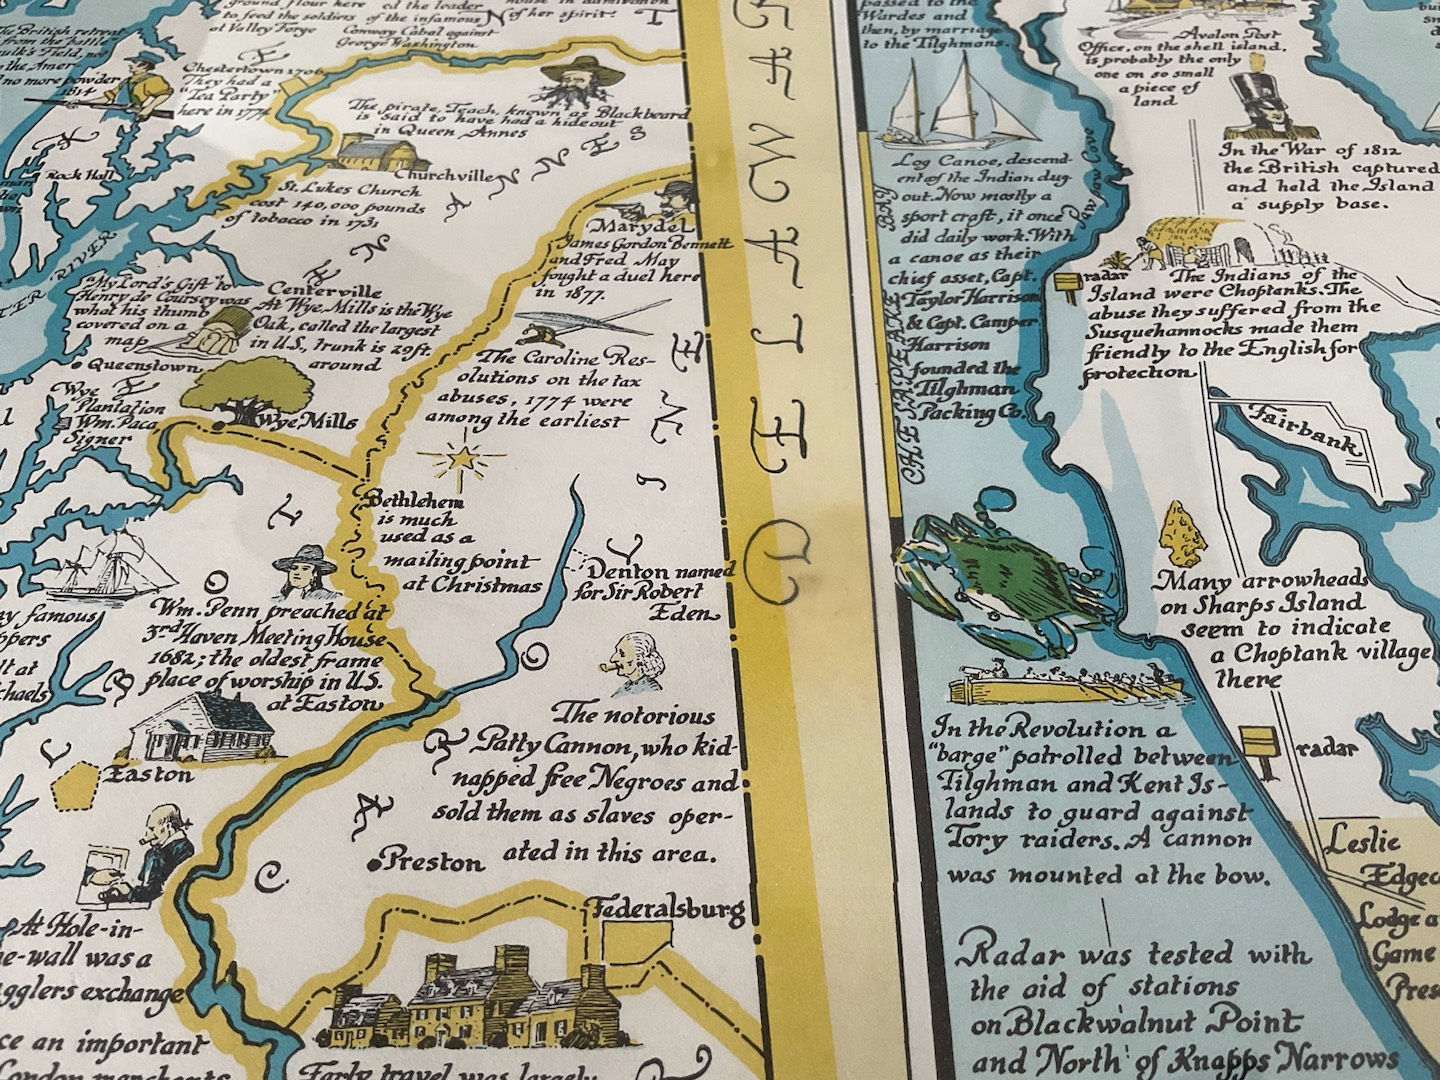 ground floor here
to feed the soldiers
at Valley Forge
ed the leader
of the infamous
Conway Cabal against
George Washington
house in admiration
of her spirit.
T
N
The British retreat
from the battle
Field,
the Amer-
no more powder
1814
E
K
Rock Hall
Chestertown 1706
They had a
"Tea Party"
here in 1774
The pirate, Teach, known as Blackbeard
is said to have had a hideout
in Queen Annes
Churchville
St. Lukes Church
cost 140,000 pounds
of tobacco in 1731
QUEEN ANNES
RIVER
Marydel
James Gordon Bennett
and Fred May
fought a duel here
in 1877.
"My Lord's Gift" to
Henry de Coursey was
what his thumb
covered on a
map
Centerville
At Wye Mills is the Wye
Oak, called the largest
in U.S., trunk is 29ft.
around
Queenstown
Wye
Plantation
Wm. Paca
Signer
Wye Mills
The Caroline Res-
olutions on the tax
abuses, 1774 were
among the earliest
Bethlehem
is much
used as a
mailing point
at Christmas
Denton named
for Sir Robert
Eden
Wm. Penn preached at
3rd Haven Meeting House
1682; the oldest frame
place of worship in U.S.
at Easton
TALBOT
Easton
CAROLINE
my famous
ppers
lt at
chaels
The notorious
Patty Cannon, who kid-
napped free Negroes and
sold them as slaves oper-
ated in this area.
Preston
Federalsburg
At Hole-in-
the-wall was a
ugglers exchange
ce an important
London merchants
Early travel was largely
DELAWAR
passed to the
Wardes and
then, by marriage
to the Tilghmans.
Log Canoe, descend-
ent of the Indian dug-
out. Now mostly a
sport craft, it once
did daily work. With
a canoe as their
chief asset, Capt.
Taylor Harrison
& Capt. Camper
Harrison
founded the
Tilghman
Packing Co.
CHESAPEAKE BAY
Paw Paw Cove
Avalon Post
Office, on the shell island,
is probably the only
one on so small
a piece of
land
In the War of 1812
the British captured
and held the Island
a supply base.
radar
The Indians of the
Island were Choptanks. The
abuse they suffered from the
Susquehannocks made them
friendly to the English for
protection.
Fairbank
Many arrowheads
on Sharps Island
seem to indicate
a Choptank village
there
In the Revolution a
"barge" patrolled between
Tilghman and Kent Is-
lands to guard against
Tory raiders. A cannon
was mounted at the bow.
radar
Leslie
Edgec
Lodge a
Game
Pres
Radar was tested with
the aid of stations
on Blackwalnut Point
and North of Knapps Narrows